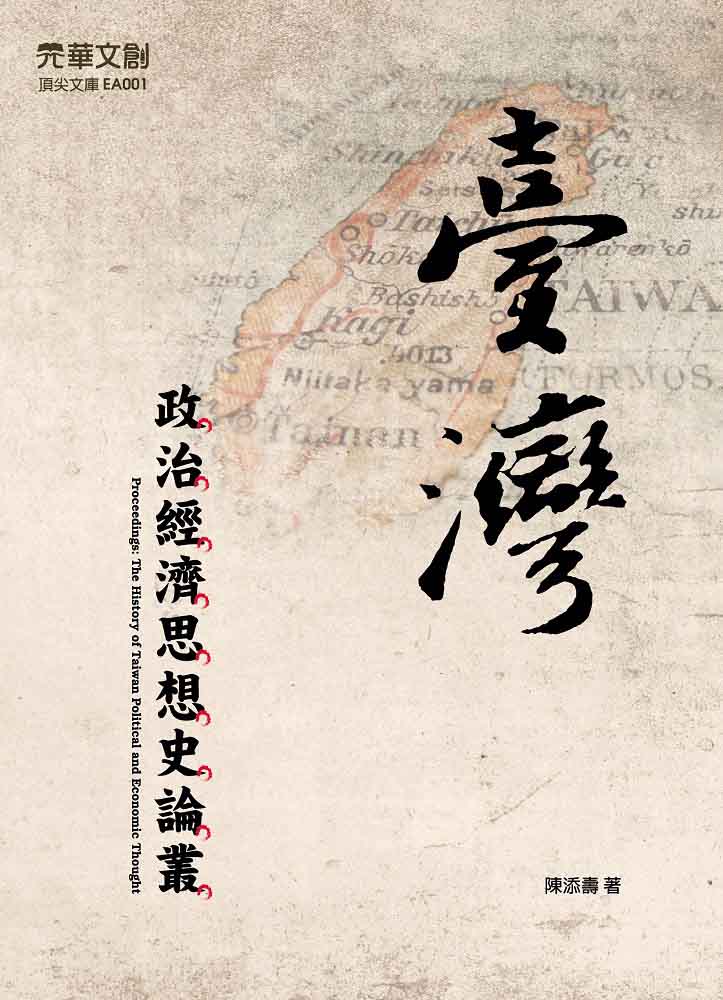 元華文創
頂尖文庫 EA001
臺灣
政治經濟思想史論叢
Proceedings: The History of Taiwan Political and Economic Thought
Kagi
4013
Niitaka yama
Tainan
TAIWA
FORMOS
陳添壽 著